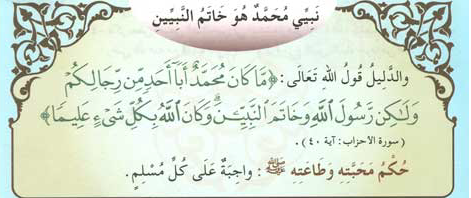 نَبِيِّي مُحَمَّدٌ هُوَ خَاتَمُ النَّبِيِّينِ
والدَّلِيلُ قَولُ اللهِ تَعَالَى: ﴿مَّا كَانَ مُحَمَّدٌ أَبَآ أَحَدٍ مِّن رِّجَالِكُمْ
وَلَٰكِن رَّسُولَ ٱللَّهِ وَخَاتَمَ ٱلنَّبِيِّـۧنَ ۗ وَكَانَ ٱللَّهُ بِكُلِّ شَىْءٍ عَلِيمًا﴾
(سورة الأحزاب: آية ٤٠).
حُكْمُ مَحَبَّتِه وَطَاعَتِه ﷺ: واجبَةٌ عَلَى كُلِّ مُسْلِمٍ.